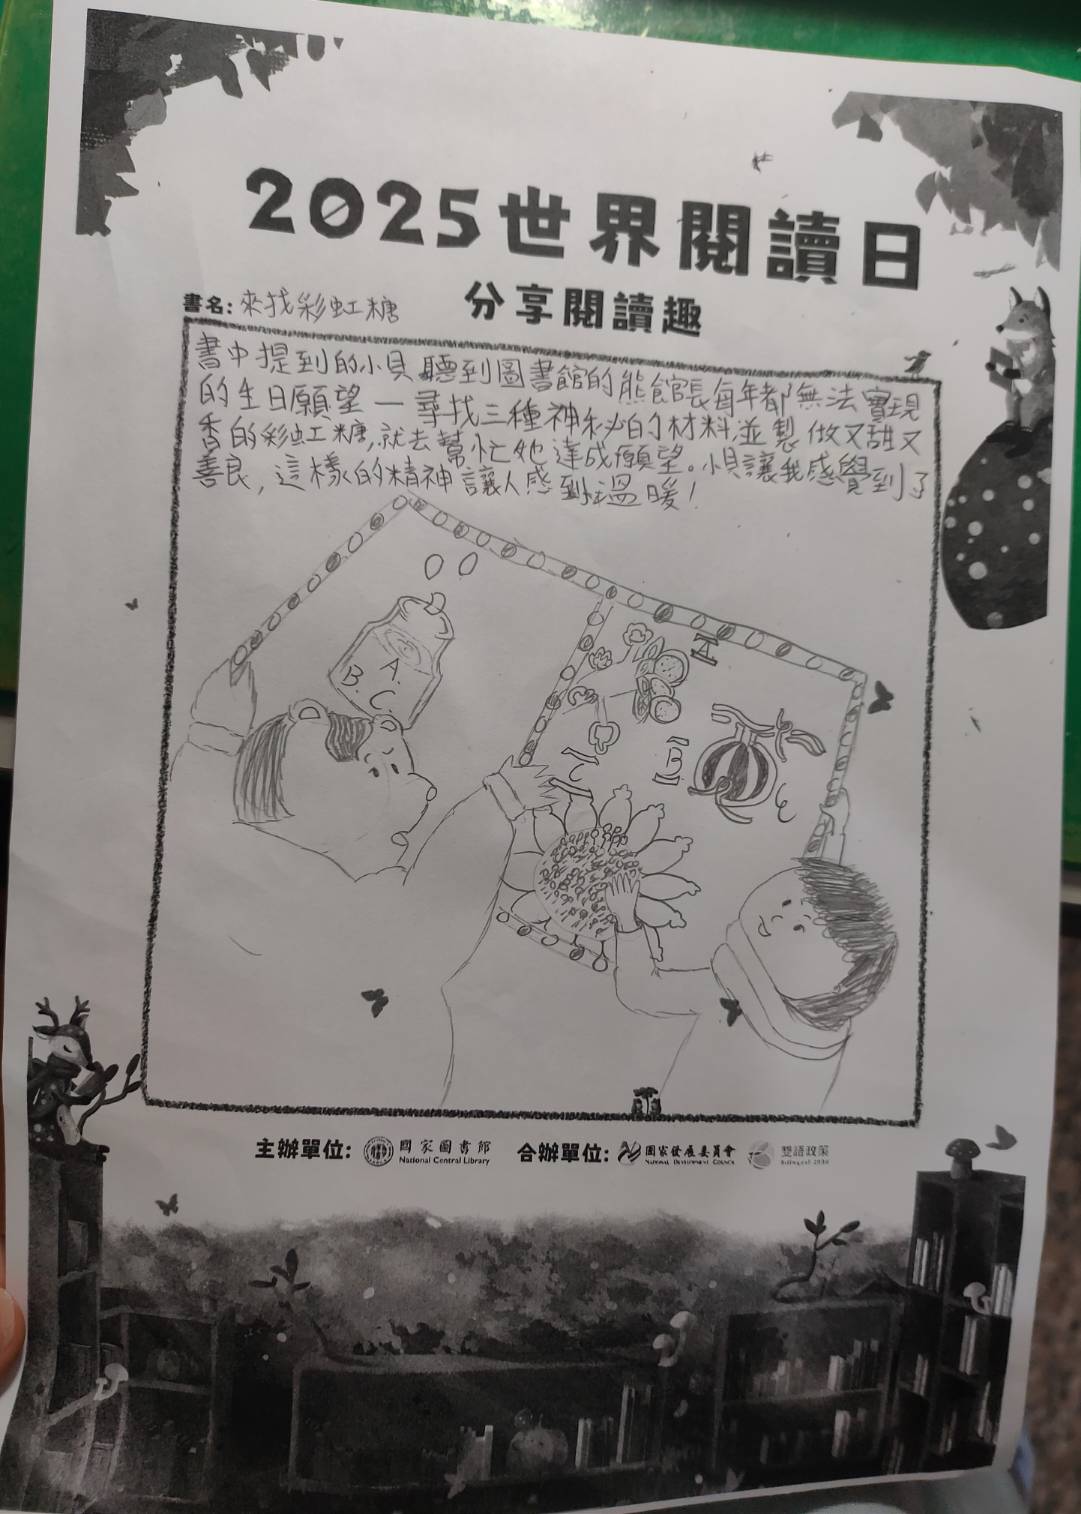 2025世界閱讀日
分享閱讀趣
書名:來找彩虹糖
書中提到的小貝聽到圖書館的熊館長每年都無法實現
的生日願望一尋找三種神秘的材料,並製做又甜又
香的彩虹糖,就去幫忙他達成願望。小貝讓我感覺到了
善良,這樣的精神讓人感到溫暖!
A.
B.
C.
A
B
C
主辦單位: 國家圖書館 National Central Library 合辦單位: 國家發展委員會 NATIONAL DEVELOPMENT COUNCIL 雙語政策 Bilingual 2030